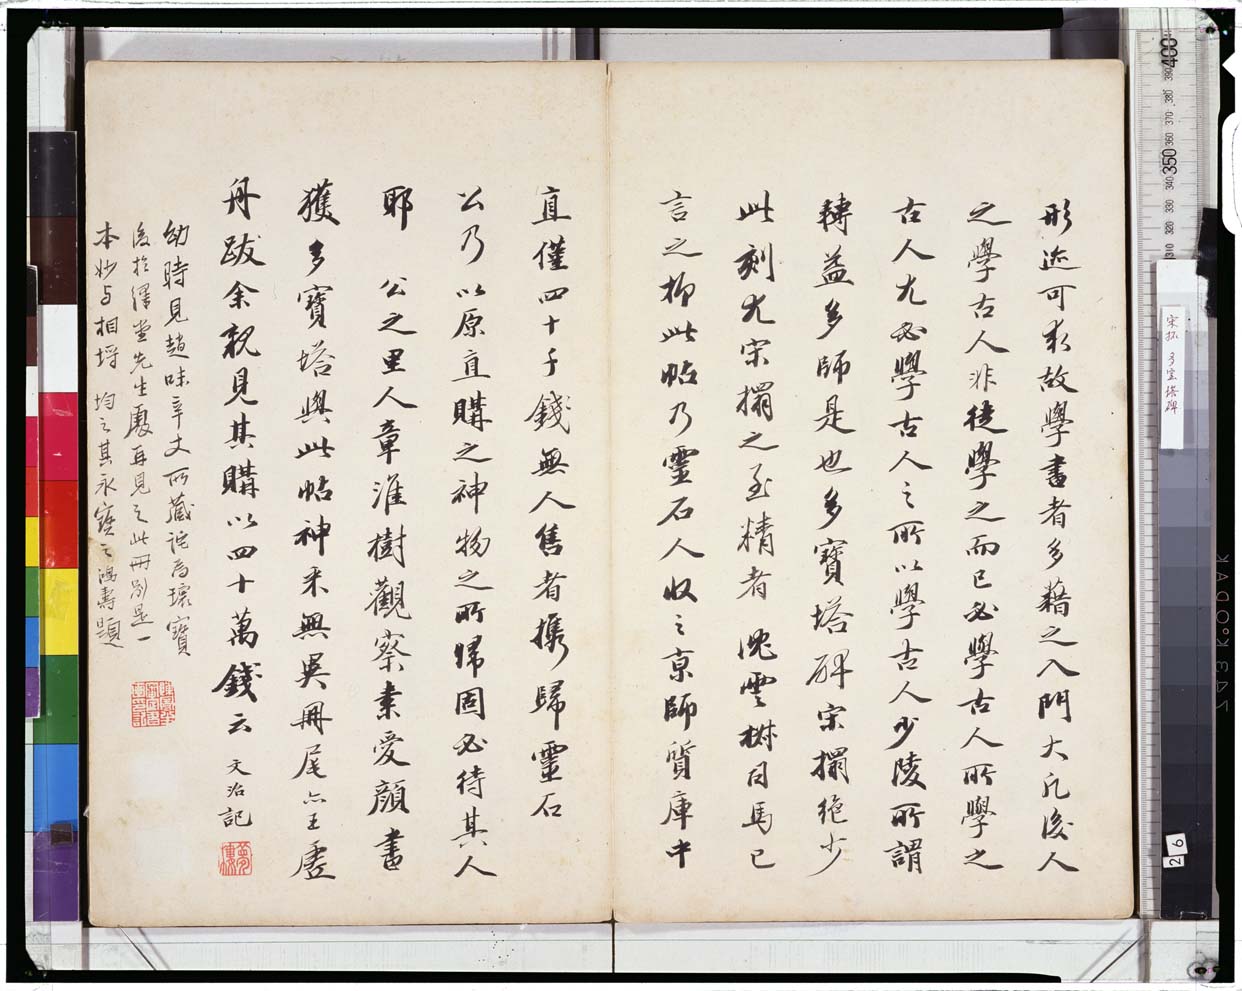 形迹可求故學書者多藉之入門大凡後人
之學古人非徒學之而已必學古人所學之
古人尤必學古人之所以學古人少陵所謂
轉益多師是也多寶塔碑宋搨絶少
此刻尤宋搨之至精者 沈雲樹同馬已
言之抑此帖乃靈石人收之京師質庫中
直僅四十千錢無人售者携歸靈石
公乃以原直購之神物之所歸固必待其人
耶 公之里人章淮樹觀察素愛顔書
獲多寶塔與此帖神采無異冊尾亦王虛
舟跋余親見其購以四十萬錢云 文治記
夢樓
幼時見趙味辛丈所藏詫為瓌寶
後於繹堂先生處再見之此冊別是一
本妙與相埒 均之其永寶之鴻壽題
宋拓 多宝塔碑
400
390
380
370
360
350
340
330
320
310
26
KODAK